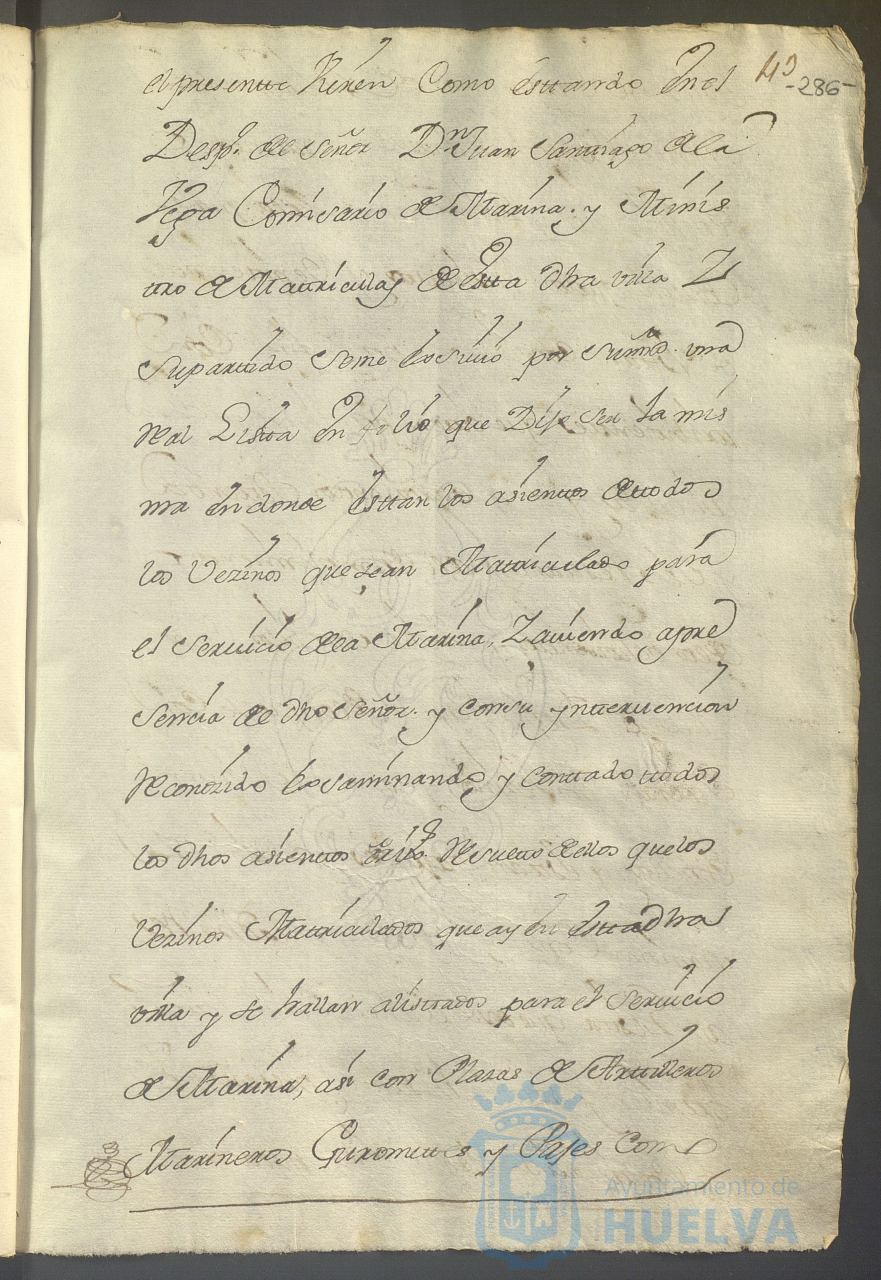 el presente Vieren Como esttando En el
43
-286-
Desp.º de Señor D.n Juan Santiago de la
Vega Comisario de Marina. y Minis
tro de Matriculas de Estta dha villa Y
Su partido Se me Exsivio por Su m.d una
Real Listta En folio que Dijo. ser la mis
ma En donde Esttan los asienttos de ttodos
los Vezinos que sean Matriculado para
el Seruicio de la Marina, Y auiendo apre
sencia de dho Señor. y con su ynteruencion
Reconozido Exsaminando y conttado ttodos
los dhos asienttos Resuelto de ellos que los
Vezinos Matriculados que ay En Estta dha
villa y se hallan alisttados para el Seruicio
de Marina, asi con Plasas de Artilleros
Marineros Gurmettes y Pajes Como
Ayuntamiento de
HUELVA